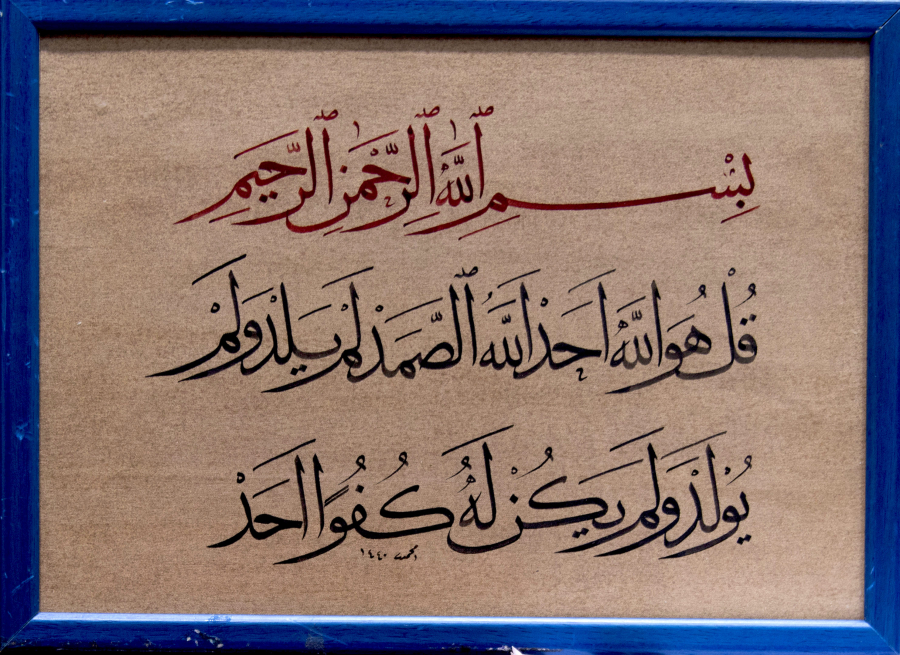 بِسْمِ ٱللَّهِ ٱلرَّحْمَٰنِ ٱلرَّحِيمِ
قُلْ هُوَ اللَّهُ اَحَدْ اَللَّهُ ٱلصَّمَدْ لَمْ يَلِدْ وَلَمْ
يُوْلَدْ وَلَمْ يَكُنْ لَهُ كُفُوًا اَحَدْ
١٤٤٠